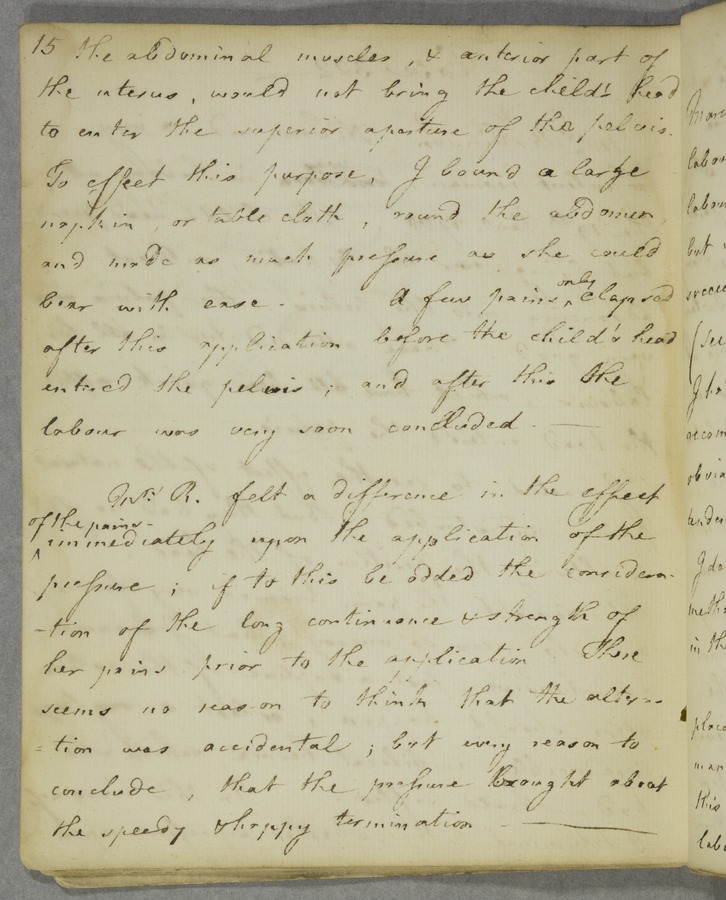 15 the abdominal muscles, & anterior part of
the uterus, would not bring the child's head
to enter the superior aperture of the pelvis.
To effect this purpose, I bound a large
napkin, or table cloth, round the abdomen
and made as much pressure as she could
bear with ease. A few pains only elapsed
after this application before the child's head
entered the pelvis; and after this the
labour was very soon concluded. —
Mrs. R. felt a difference in the effect
of the pains immediately upon the application of the
pressure; if to this be added the considera-
-tion of the long continuance & strength of
her pains prior to the application There
seems no reason to think that the altera-
=tion was accidental; but every reason to
conclude, that the pressure brought about
the speedy & happy termination —